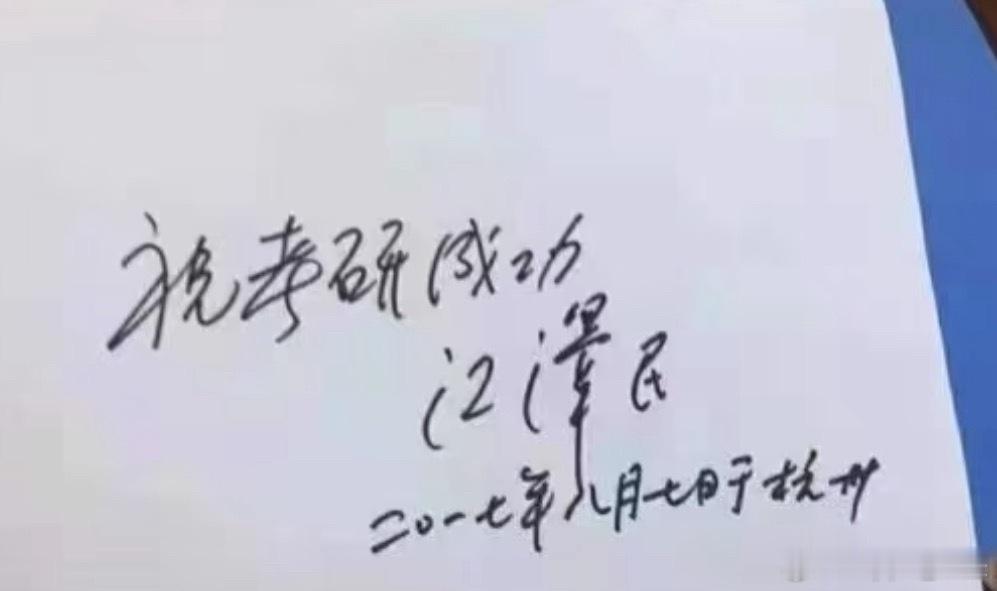 祝考研成功
江泽民
二〇一七年八月七日于杭州